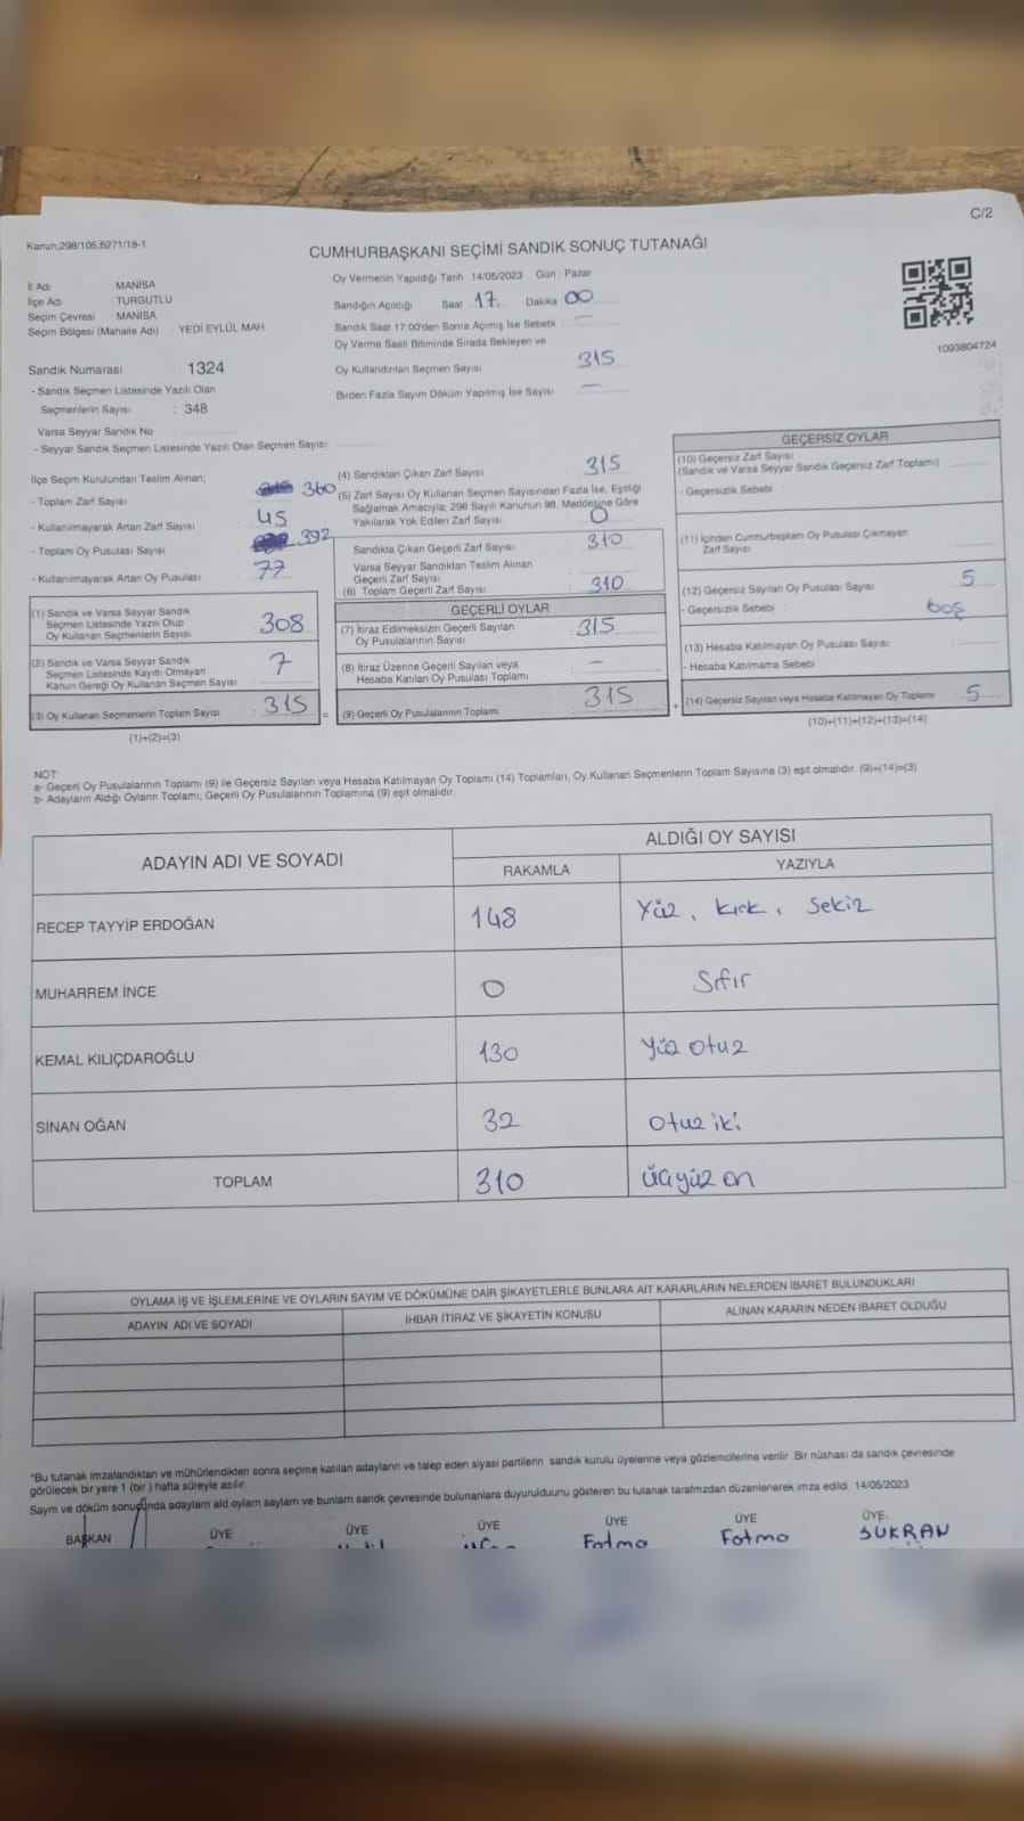 C/2
Kanun;298/105,6271/18-1
CUMHURBAŞKANI SEÇİMİ SANDIK SONUÇ TUTANAĞI
İl Adı : MANİSA
İlçe Adı : TURGUTLU
Seçim Çevresi : MANİSA
Seçim Bölgesi (Mahalle Adı) : YEDİ EYLÜL MAH
Oy Vermenin Yapıldığı Tarih 14/05/2023 Gün : Pazar
Sandığın Açıldığı Saat 17. Dakika 00
Sandık Saat 17:00'den Sonra Açılmış İse Sebebi
Oy Verme Saati Bitiminde Sırada Bekleyen ve
Oy Kullandırılan Seçmen Sayısı 315
Birden Fazla Sayım Döküm Yapılmış İse Sayısı —
1093804724
Sandık Numarası 1324
- Sandık Seçmen Listesinde Yazılı Olan
Seçmenlerin Sayısı : 348
Varsa Seyyar Sandık No
- Seyyar Sandık Seçmen Listesinde Yazılı Olan Seçmen Sayısı
İlçe Seçim Kurulundan Teslim Alınan;
- Toplam Zarf Sayısı 360
- Kullanılmayarak Artan Zarf Sayısı 45
- Toplam Oy Pusulası Sayısı 392
- Kullanılmayarak Artan Oy Pusulası 77
(1) Sandık ve Varsa Seyyar Sandık
Seçmen Listesinde Yazılı Olup
Oy Kullanan Seçmenlerin Sayısı 308
(2) Sandık ve Varsa Seyyar Sandık
Seçmen Listesinde Kayıtlı Olmayan
Kanun Gereği Oy Kullanan Seçmen Sayısı 7
(3) Oy Kullanan Seçmenlerin Toplam Sayısı 315
(1)+(2)=(3)
(4) Sandıktan Çıkan Zarf Sayısı 315
(5) Zarf Sayısı Oy Kullanan Seçmen Sayısından Fazla İse, Eşitliği
Sağlamak Amacıyla; 298 Sayılı Kanunun 98. Maddesine Göre
Yakılarak Yok Edilen Zarf Sayısı 0
Sandıkta Çıkan Geçerli Zarf Sayısı 310
Varsa Seyyar Sandıktan Teslim Alınan
Geçerli Zarf Sayısı
(6) Toplam Geçerli Zarf Sayısı 310
GEÇERLİ OYLAR
(7) İtiraz Edilmeksizin Geçerli Sayılan
Oy Pusulalarının Sayısı 315
(8) İtiraz Üzerine Geçerli Sayılan veya
Hesaba Katılan Oy Pusulası Toplamı —
(9) Geçerli Oy Pusulalarının Toplamı 315
GEÇERSİZ OYLAR
(10) Geçersiz Zarf Sayısı
(Sandık ve Varsa Seyyar Sandık Geçersiz Zarf Toplamı)
- Geçersizlik Sebebi
(11) İçinden Cumhurbaşkanı Oy Pusulası Çıkmayan
Zarf Sayısı
(12) Geçersiz Sayılan Oy Pusulası Sayısı 5
- Geçersizlik Sebebi boş
(13) Hesaba Katılmayan Oy Pusulası Sayısı
- Hesaba Katılmama Sebebi
(14) Geçersiz Sayılan veya Hesaba Katılmayan Oy Toplamı 5
(10)+(11)+(12)+(13)=(14)
NOT
a- Geçerli Oy Pusulalarının Toplamı (9) ile Geçersiz Sayılan veya Hesaba Katılmayan Oy Toplamı (14) Toplamları, Oy Kullanan Seçmenlerin Toplam Sayısına (3) eşit olmalıdır. (9)+(14)=(3)
b- Adayların Aldığı Oyların Toplamı, Geçerli Oy Pusulalarının Toplamına (9) eşit olmalıdır.
ADAYIN ADI VE SOYADI ALDIĞI OY SAYISI
RAKAMLA YAZIYLA
RECEP TAYYİP ERDOĞAN 148 Yüz, kırk, sekiz
MUHARREM İNCE 0 Sıfır
KEMAL KILIÇDAROĞLU 130 yüz otuz
SİNAN OĞAN 32 otuz iki
TOPLAM 310 üçyüz on
OYLAMA İŞ VE İŞLEMLERİNE VE OYLARIN SAYIM VE DÖKÜMÜNE DAİR ŞİKAYETLERLE BUNLARA AİT KARARLARIN NELERDEN İBARET BULUNDUKLARI
ADAYIN ADI VE SOYADI İHBAR İTİRAZ VE ŞİKAYETİN KONUSU ALINAN KARARIN NEDEN İBARET OLDUĞU
*Bu tutanak imzalandıktan ve mühürlendikten sonra seçime katılan adayların ve talep eden siyasi partilerin sandık kurulu üyelerine veya gözlemcilerine verilir. Bir nüshası da sandık çevresinde
görülecek bir yere 1 (bir) hafta süreyle asılır.
Sayım ve döküm sonuçunda adayların aldı oyların sayıların ve bunların sandık çevresinde bulunanlara duyurulduunu gösteren bu tutanak tarafımızdan düzenlenerek imza edildi. 14/05/2023
BAŞKAN ÜYE ÜYE ÜYE ÜYE ÜYE ÜYE
Fatma Fatma ŞUKRAN